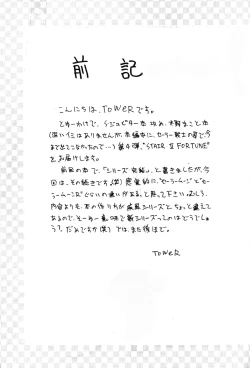 前記
こんにちは、TOWERです。
とゆーわけで、ジュピター本改め、木野まこと本
(深いイミはありませんが、本編中に、セーラー戦士の名で今
まで出てこなかたので…)第4弾、"STAIR Ⅱ FORTUNE"
をお届けします。
前回の本で、「シリーズ完結」と書きましたが、今
回は、その続きです。(笑)感覚的に、"セーラームーン"と"セ
ーラームーンR"ぐらいの違いがある、と思って下さい。むしろ、
内容よりも、本の作り方が前シリーズとちょっと違えて
あるので、そーゆー意味で新シリーズってのはどうでしょ
う?、だめですか(笑) では、また後ほど。
TOWER